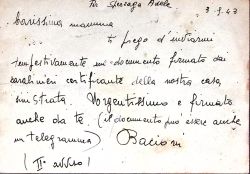 3-9-43
Carissima mamma
ti prego d'inviarmi
tempestivamente un documento firmato dai
carabinieri certificante della nostra casa
sinistrata. Urgentissimo e firmato
anche da te (il documento può essere anche
un telegramma) Bacioni
(II° avviso)